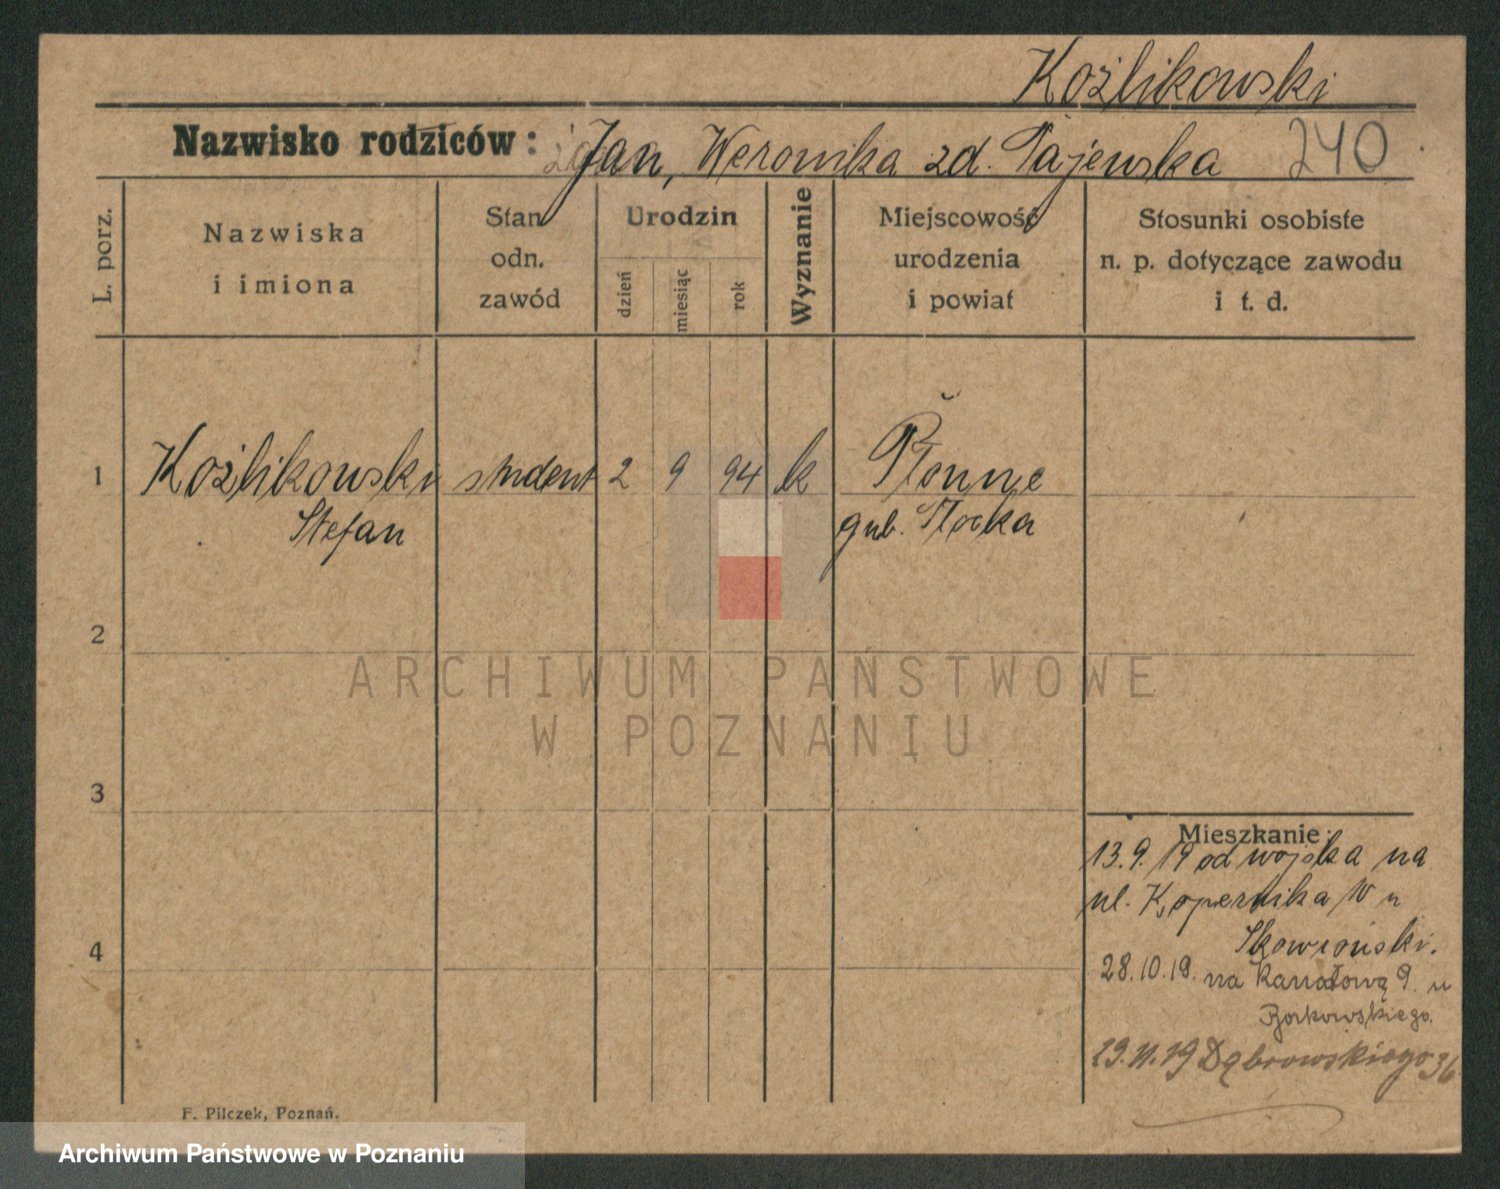 Koźlikowski
Nazwisko rodziców: Jan, Weronika zd. Pajewska 240
L. porz.
Nazwiska
i imiona
Stan
odn.
zawód
Urodzin
dzień
miesiąc
rok
Wyznanie
Miejscowość
urodzenia
i powiat
Stosunki osobiste
n. p. dotyczące zawodu
i t. d.
1 Koźlikowski student 2 9 94 k Płonne
Stefan gub. Płocka
2
3
4
Mieszkanie:
13.9.19 od wojska na
ul. Kopernika 10 u
Skowroński.
28.10.19. na Kanałową 9. u
Borkowskiego.
29.11.19 Dąbrowskiego 36
F. Pilczek, Poznań.
ARCHIWUM PAŃSTWOWE
W POZNANIU
Archiwum Państwowe w Poznaniu